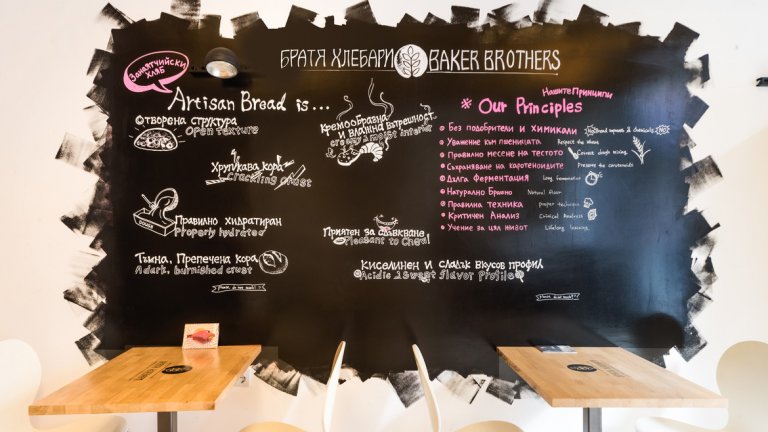 БРАТЯ ХЛЕБАРИ BAKER BROTHERS
Занаятчийски
хляб
Artisan Bread is ...
Отворена структура
Open Texture
Хрупкава кора
Crackling crust
Правилно хидратиран
Properly hydrated
Тъмна, Препечена кора
A dark, burnished crust
Кремообразна
и влажна вътрешност
creamy & moist interior
Приятен за дъвкване
Pleasant to Chew!
Киселинен и сладък вкусов профил
Acidic & sweet flavor profile
Нашите Принципи
* Our Principles
Без подобрители и химикали
Уважение към пшеницата Respect the wheat
Правилно месене на тестото Correct dough mixing
Съхраняване на каротеноидите Preserve the carotenoids
Дълга ферментация Long fermentation
Натурално Брашно Natural flour
Правилна техника proper technique
Критичен Анализ Critical Analysis
Учение за цял живот Lifelong learning